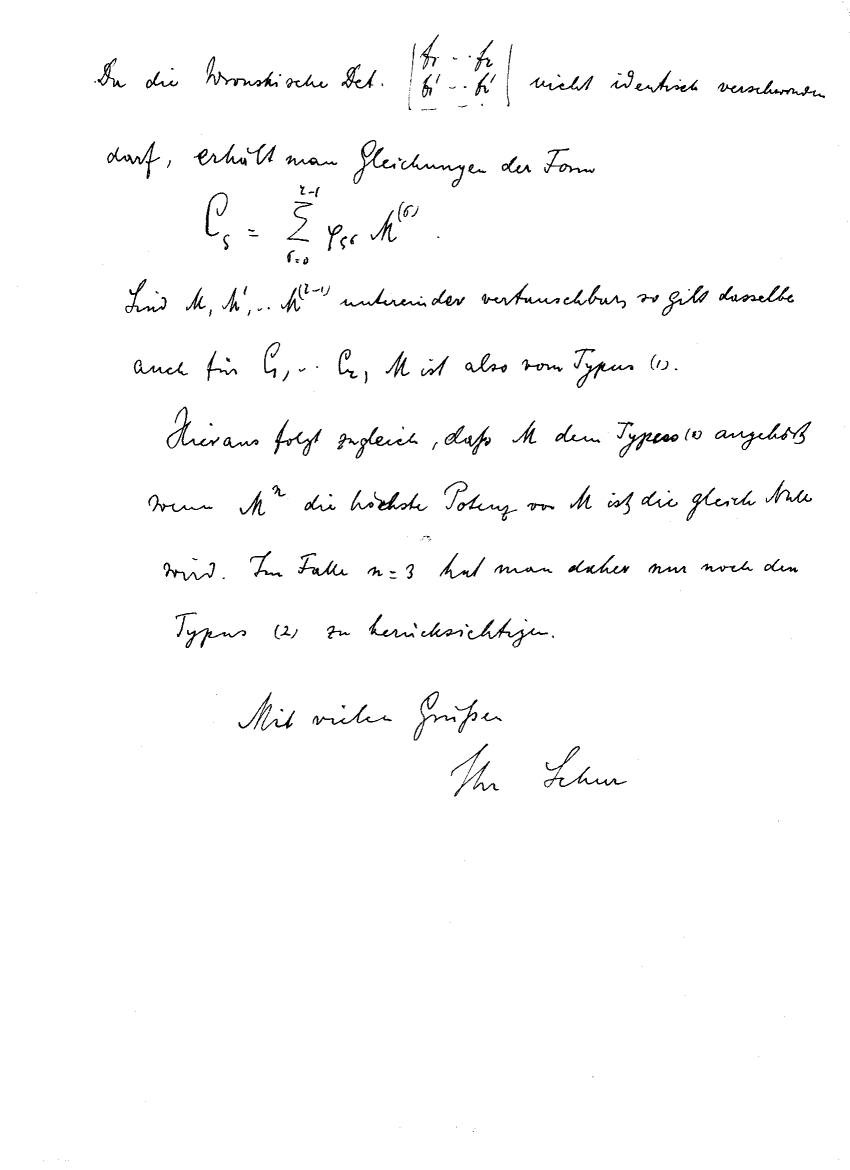 Da die Wronskische Det. |f₁ ·· fᵣ / f₁' ·· fᵣ' / – – ·| nicht identisch verschwinden
darf, erhält man Gleichungen der Form
C_ρ = Σ_{σ=0}^{r-1} φ_ρσ M^(σ) .
Sind M, M', ·· M^(r-1) untereinander vertauschbar, so gilt dasselbe
auch für C₁, ·· Cᵣ, M ist also vom Typus (1).
Hieraus folgt zugleich, daß M dem Typus (1) angehört
wenn Mⁿ die höchste Potenz von M ist, die gleich Null
wird. Im Falle n = 3 hat man daher nur noch den
Typus (2) zu berücksichtigen.
Mit vielen Grüßen
Ihr Schur